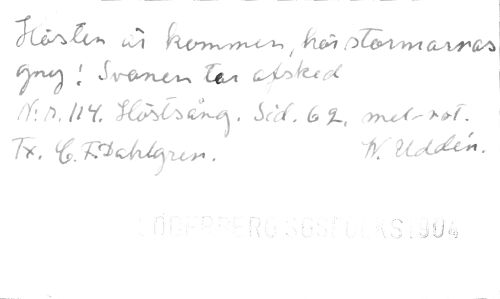 Hösten är kommen, hör stormarnas
gny! Svanen tar afsked
N:r. 114. Höstsång. Sid. 62. mel-not.
Tx. C. F. Dahlgren. W. Uddén.